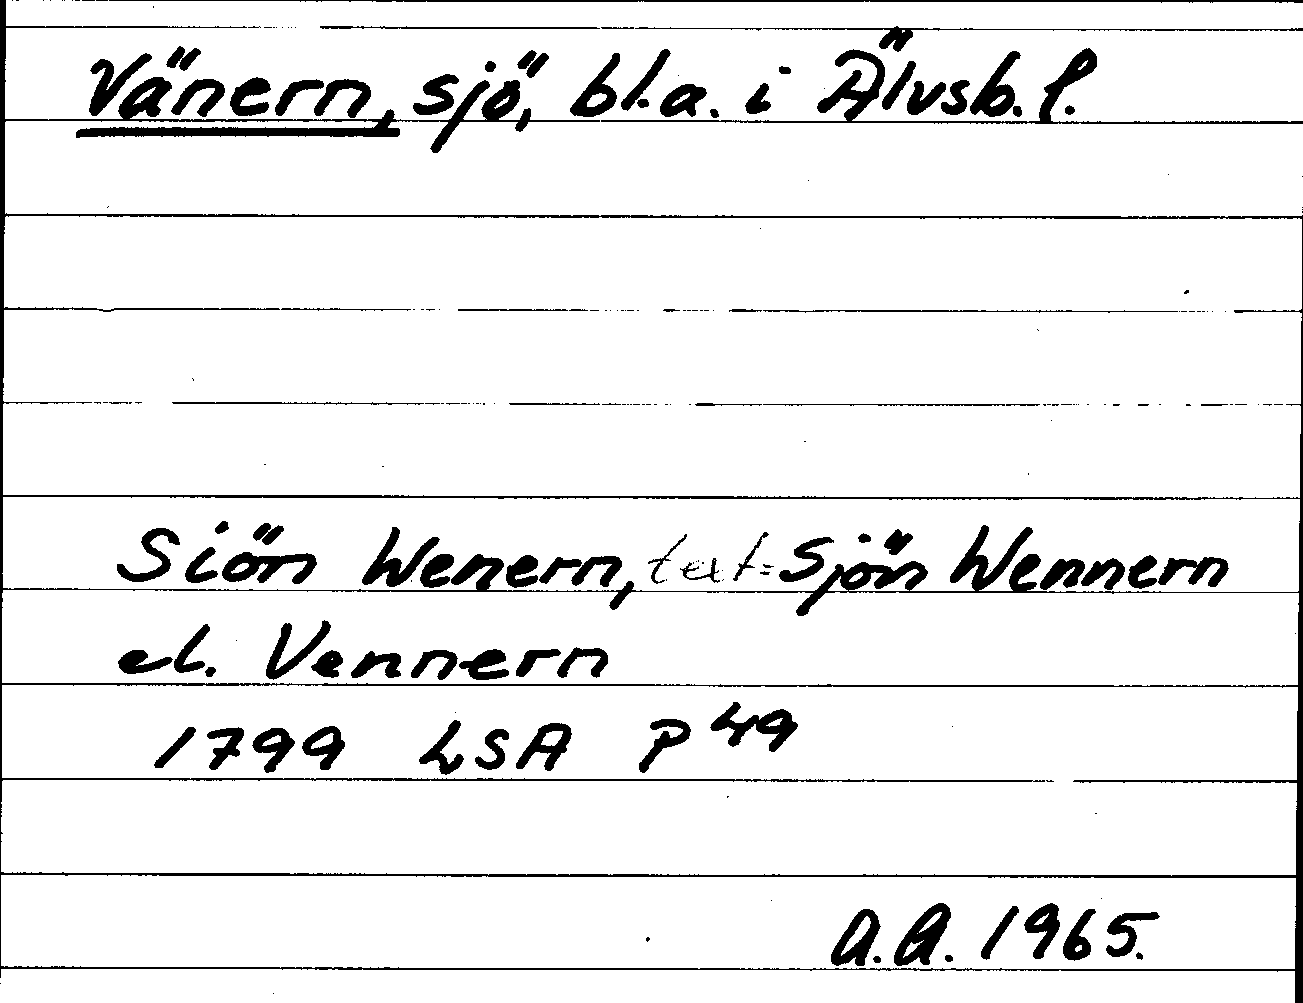 Vänern, sjö, bl.a. i Älvsb. l.
Siön Wenern, text= Sjön Wennern
el. Vennern
1799 LSA P 49
A.A. 1965.